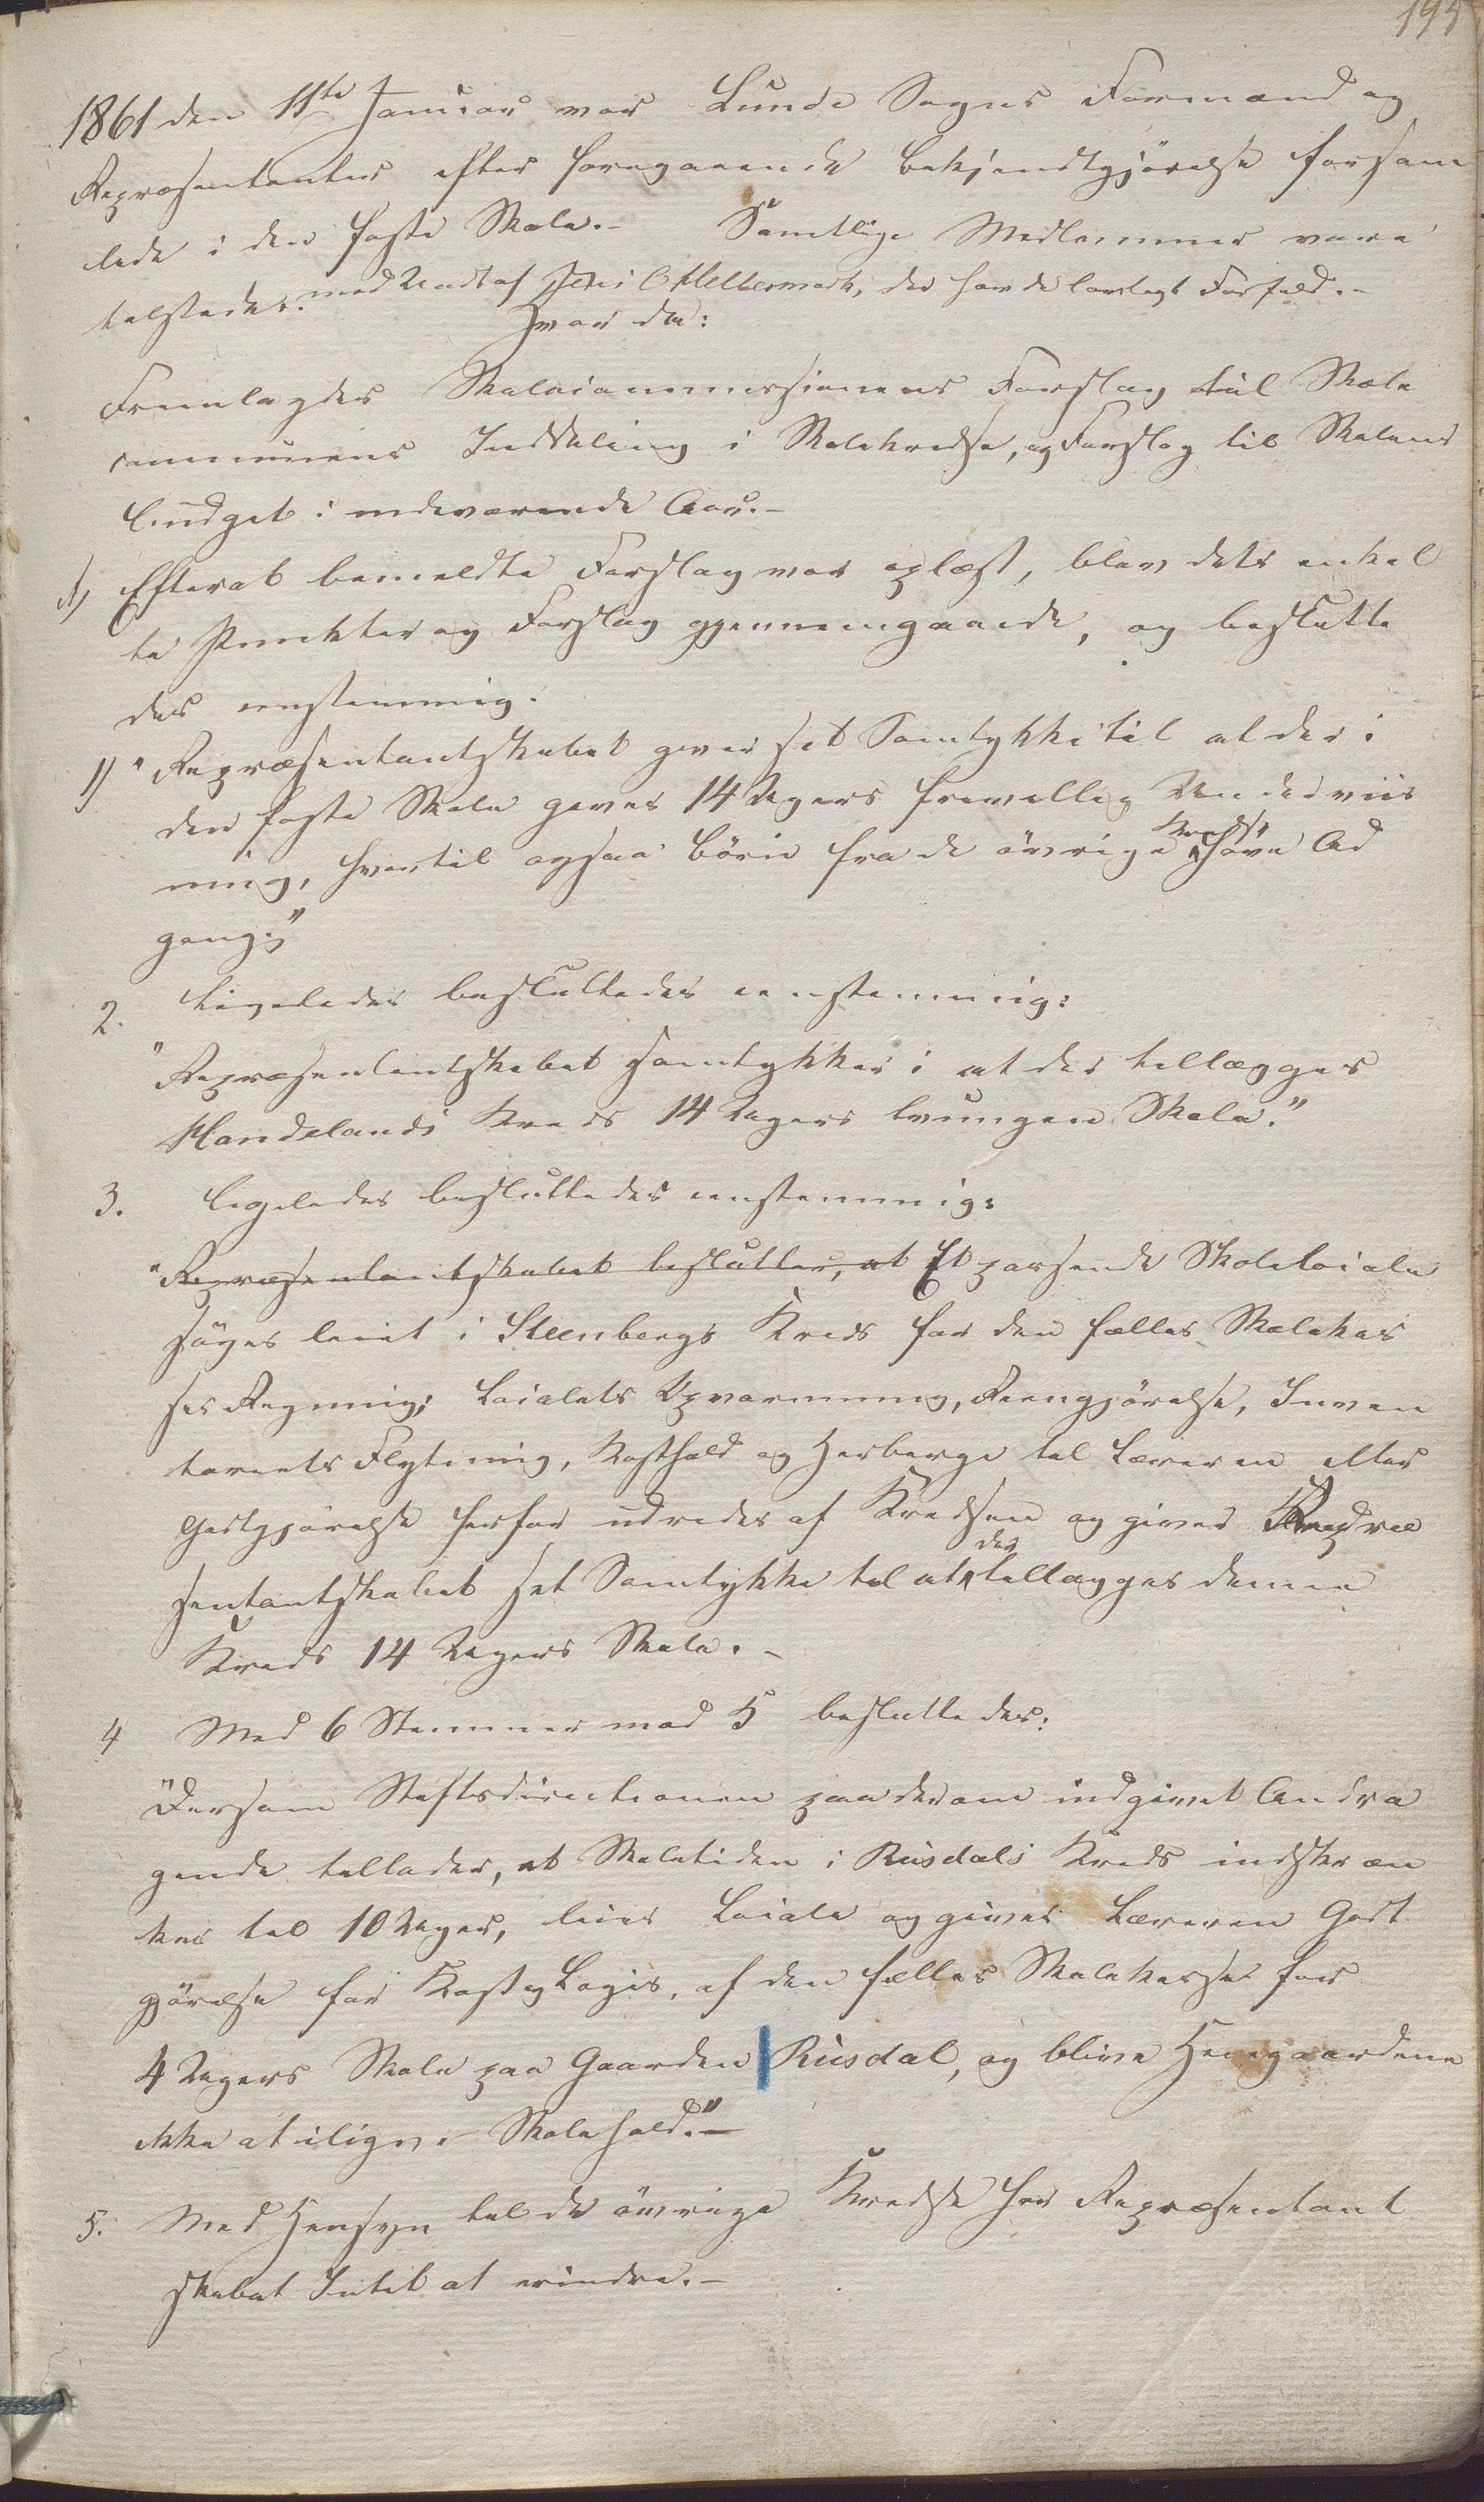 195
1861 den 11te Januar var Lunde Sogns Formænd og
Repræsentanter efter foregaaende Bekjendtgjörelse forsam
lede i den faste Skole.- Samtlige Medlemmer vare
tilstede. med Undt af Jens O Mellesmark, der havde lovligt Forfald.-
Hvor da:
Fremlagdes Skolecommissionens Forslag til Skole
communens Inddeling i Skolekredse, og Forslag til Skolens
Budget i indeværende Aar.-
A, Efterat bemeldte Forslag var oplæst, blev dets enkel
te Punkter og Forslag gjennemgaaede, og beslutte
des eenstemmig:
1) "Repræsentantskabet giver sit Samtykke til at der i
den faste Skole gives 14 Ugers frivillig Underviis
ning, hvortil ogsaa Börn fra de övrige Kredse have Ad
gang."
2. Ligeledes besluttedes eenstemmig:
"Repræsentantskabet samtykker i at der tillægges
Handelands Kreds 14 Ugers tvungen Skole."
3. Ligeledes besluttedes eenstemmig:
"Repræsentantskabet beslutter, at Et passende Skolelocale
söges leiet i Steenbergs Kreds for den fælles Skolekas
ses Regning; Localets Opvarmning, Reengjörelse, Inven
tariets Flytning, Kosthold og Herberge til Læreren eller
Godtgjörelse herfor udredes af Kredsen og giver Repræ
sentantskabet sit Samtykke til at der tillægges denne
Kreds 14 Ugers Skole.-
4 Med 6 Stemmer mod 5 besluttedes:
"Dersom Stiftsdirectionen paa derom indgivet Andra
gende tillader, at Skoletiden i Rusdals Kreds indskræn
kes til 10 Uger, leies Locale og gives Læreren Godt
gjörelse for Kost og Logis, af den fælles Skolekasse for
4 Ugers Skole paa Gaarden Rusdal, og blive Heiegaardene
ikke at iligne Skolehold."-
5. Med Hensyn til de övrige Kredse har Repræsentant
skabet Intet at erindre.-